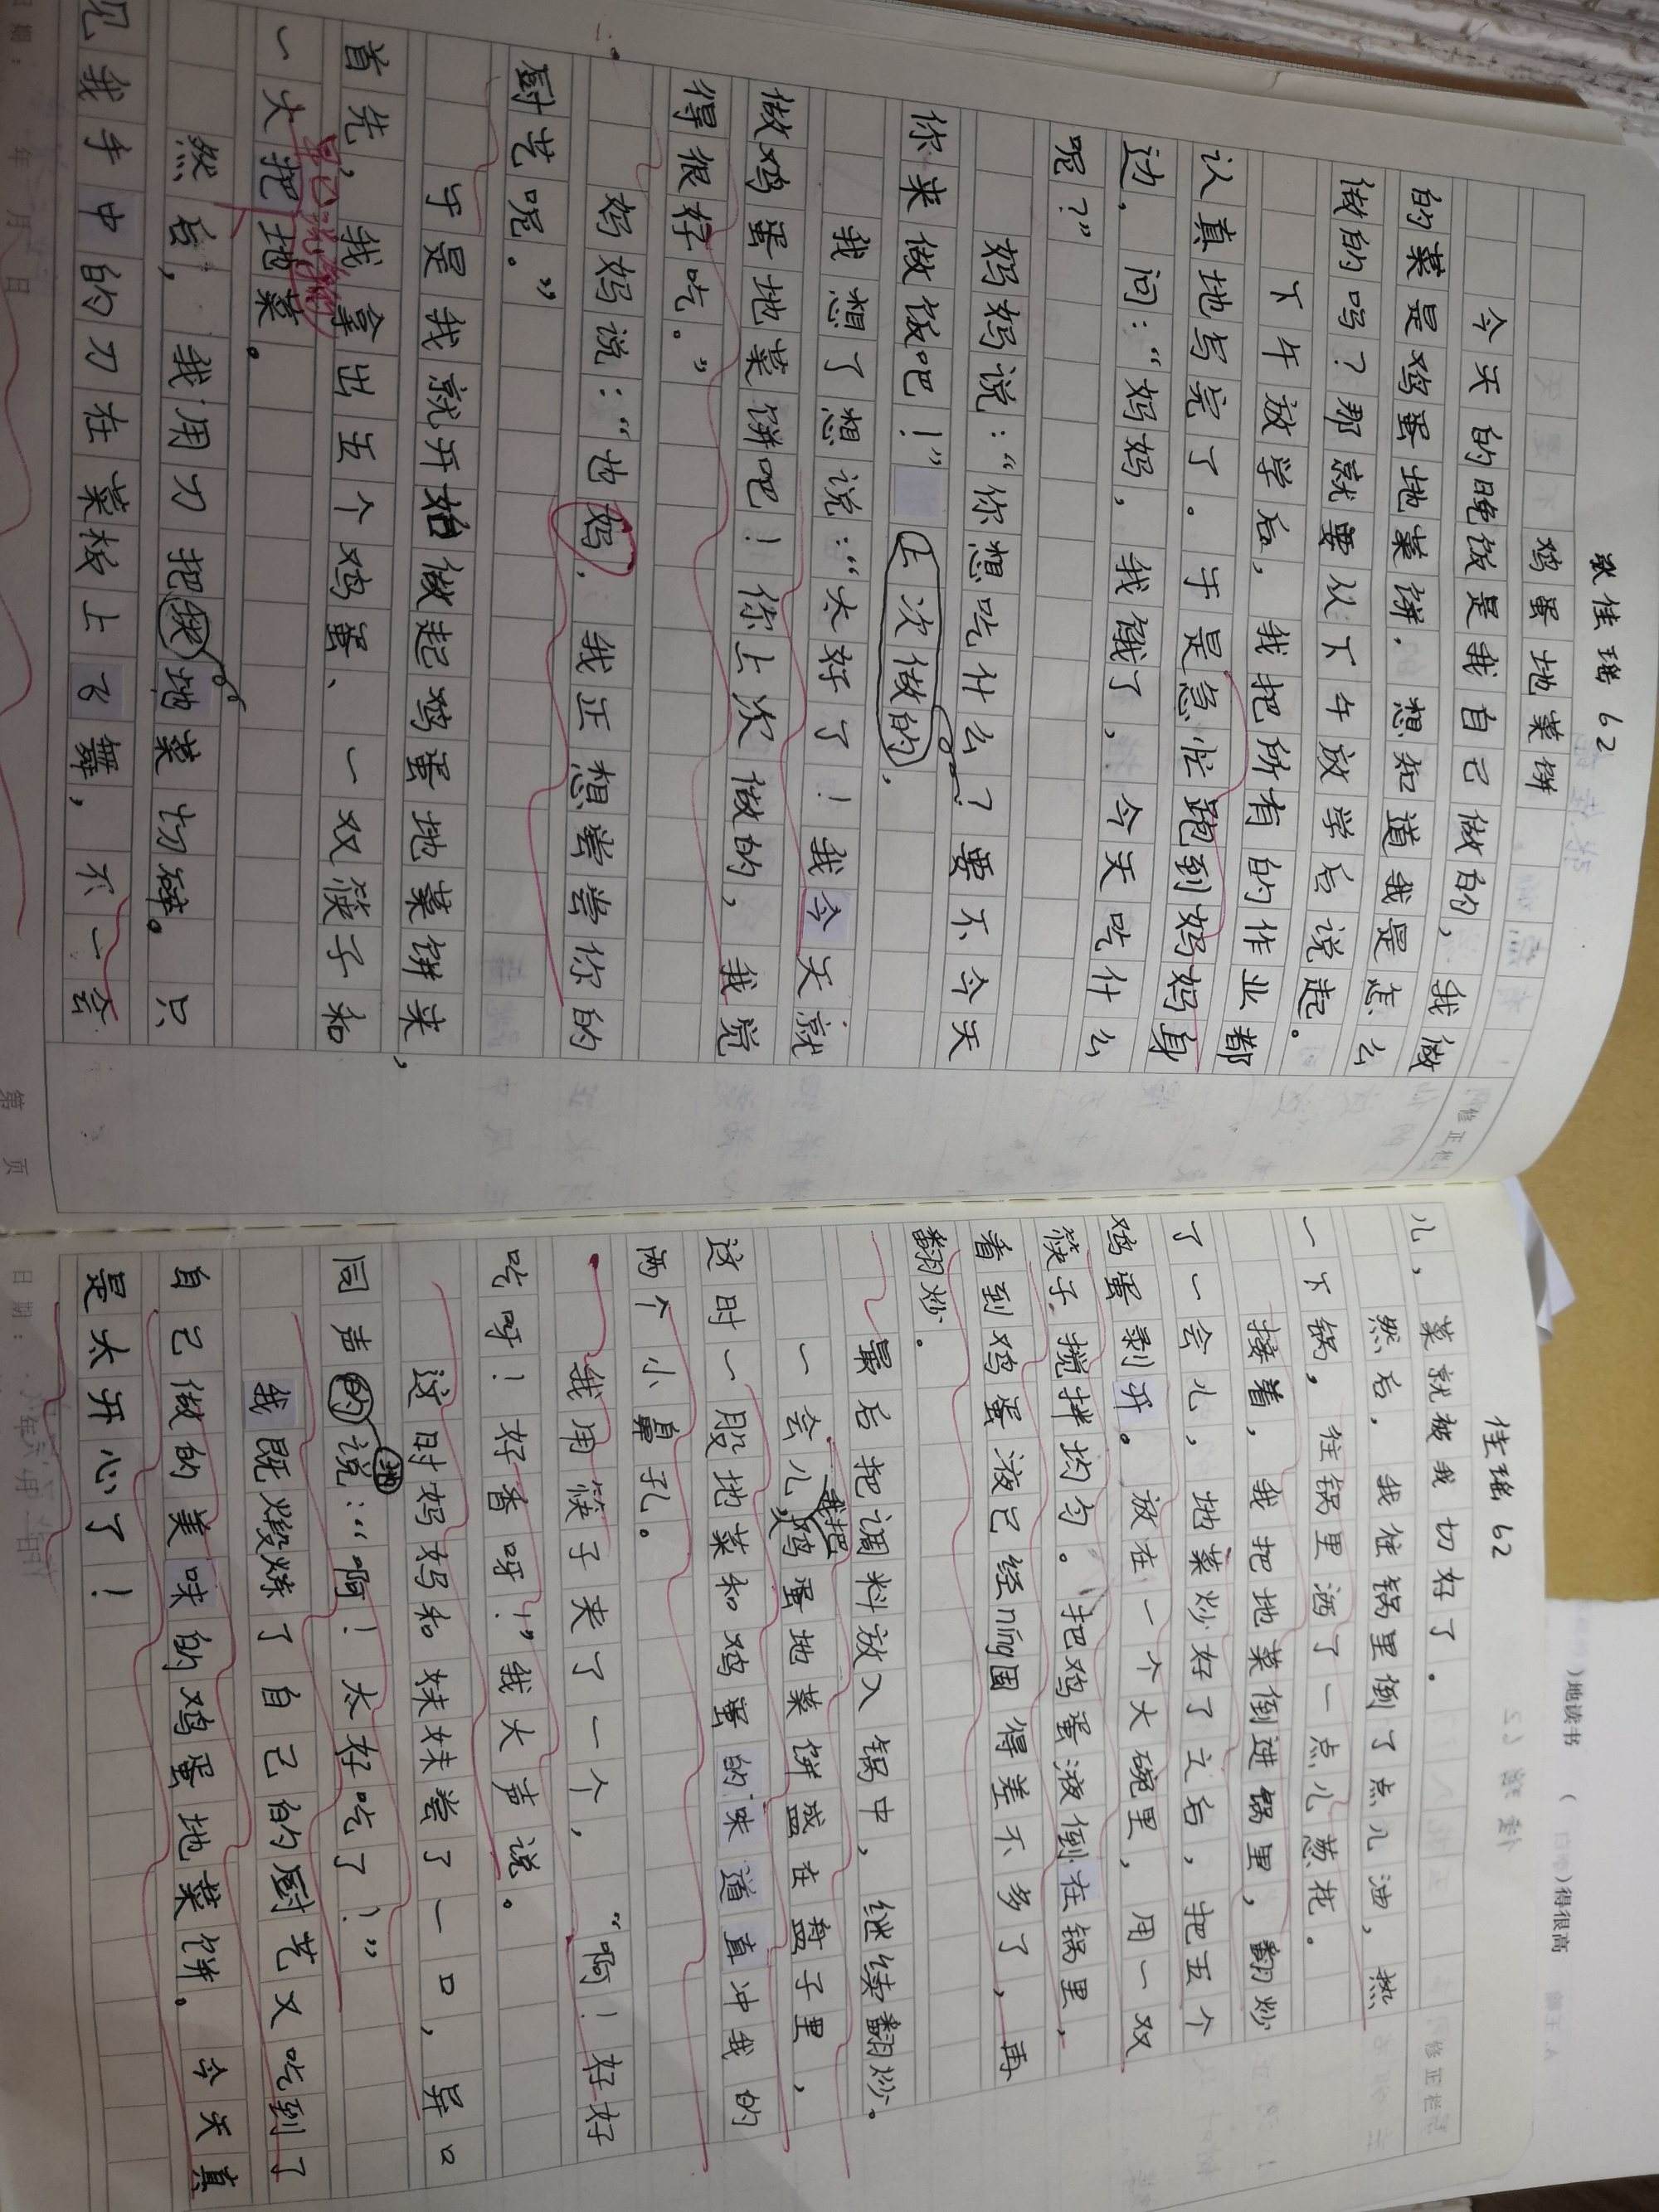 张佳瑶 62
鸡蛋地菜饼
今天的晚饭是我自己做的，我做
的菜是鸡蛋地菜饼，想知道我是怎么
做的吗？那就要从下午放学后说起。
下午放学后，我把所有的作业都
认真地写完了。于是急忙跑到妈妈身
边，问：“妈妈，我饿了，今天吃什么
呢？”
妈妈说：“你想吃什么？要不今天
你来做饭吧！” 上次做的，
我想了想说：“太好了！我今天就
做鸡蛋地菜饼吧！你上次做的，我觉
得很好吃。”
妈妈说：“也妈，我正想尝尝你的
厨艺呢。”
于是我就开始做起鸡蛋地菜饼来，
首先，我拿出五个鸡蛋、一双筷子和
一大把地菜。
然后，我用刀把地菜切碎。只
见我手中的刀在菜板上飞舞，不一会
修正栏
第 页
年 月 日
佳瑶 62
儿，菜就被我切好了。
然后，我往锅里倒了点儿油，热
一下锅，往锅里洒了一点儿葱花。
接着，我把地菜倒进锅里，翻炒
了一会儿，地菜炒好了之后，把五个
鸡蛋剥开。放在一个大碗里，用一双
筷子搅拌均匀。把鸡蛋液倒在锅里，
看到鸡蛋液已经níng固得差不多了，再
翻炒。
最后把调料放入锅中，继续翻炒。
一会儿，我把鸡蛋地菜饼盛在盘子里，
这时一股地菜和鸡蛋的味道直冲我的
两个小鼻孔。
我用筷子夹了一个，“啊！好好
吃呀！好香呀！”我大声说。
这时妈妈和妹妹尝了一口，异口
同声的地说：“啊！太好吃了！”
我既煅炼了自己的厨艺又吃到了
自己做的美味的鸡蛋地菜饼。今天真
是太开心了！
修正栏
日期：
)地读书
)得很高